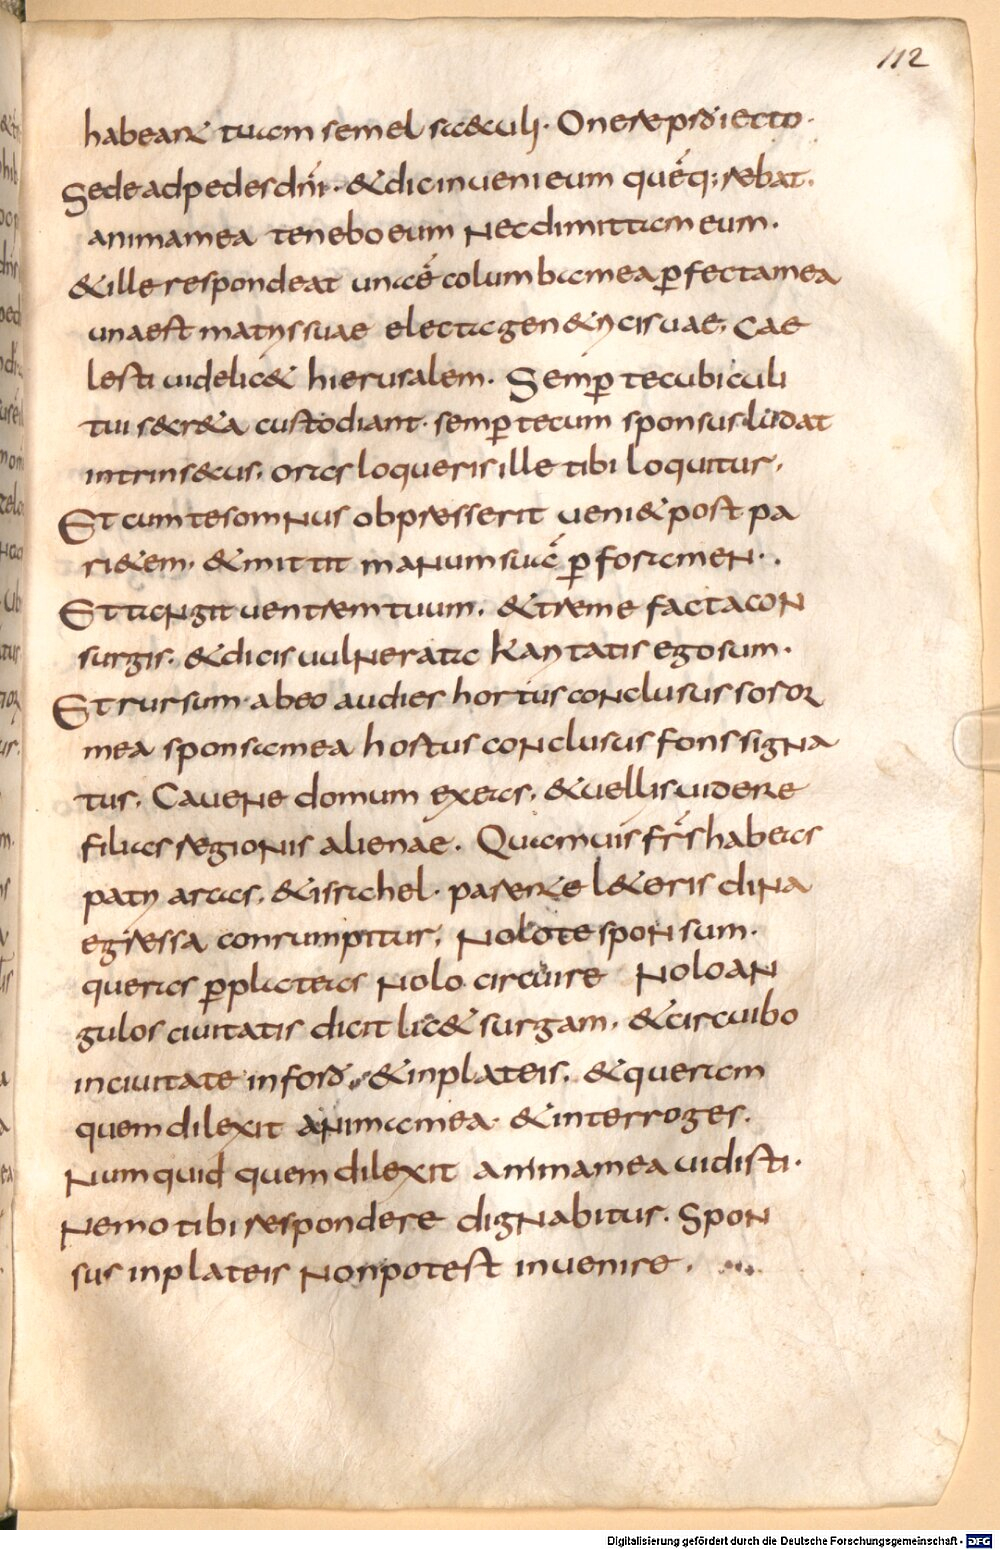 112
habeant tuam semel saeculi. Onere proiecto.
Sede ad pedes dn̄i. & dic inueni eum quē q; rebat.
anima mea tenebo eum nec dimittam eum.
& ille respondeat una ē columba mea ꝑfecta mea
una est matris suae electa genetrici suae, Cae
lesti uidelic& hierusalem. Semꝑ te cubiculi
tui secr&a custodiant. semꝑ tecum sponsus ludat
intrinsecus. oras loqueris ille tibi loquitur,
Et cum te somnus obpresserit ueni& post pa
ri&em. & mittit manum suā ꝑ foramen.
Et tangit uentrem tuum. & tremefacta con
surgis. & dicis uulnerata karitatis ego sum.
Et rursum. ab eo audies hortus conclusus soror
mea sponsa mea hostus conclusus fons signa
tus. Cauene domum exeas. & uellis uidere
filias regionis alienae. Quamuis fr̄s habeas
patriarcas. & israhel. parente l&eris dina
egressa conrumpitur, Nolo te sponsum.
queras ꝑ plateas nolo circuire nolo an
gulos ciuitatis dicit lic& surgam. & circuibo
in ciuitate in foro & in plateis. & queram
quem dilexit anima mea. & interroges.
Num quid quem dilexit anima mea uidisti.
Nemo tibi respondere dignabitur. Spon
sus in plateis non potest inuenire.
Digitalisierung gefördert durch die Deutsche Forschungsgemeinschaft - DFG